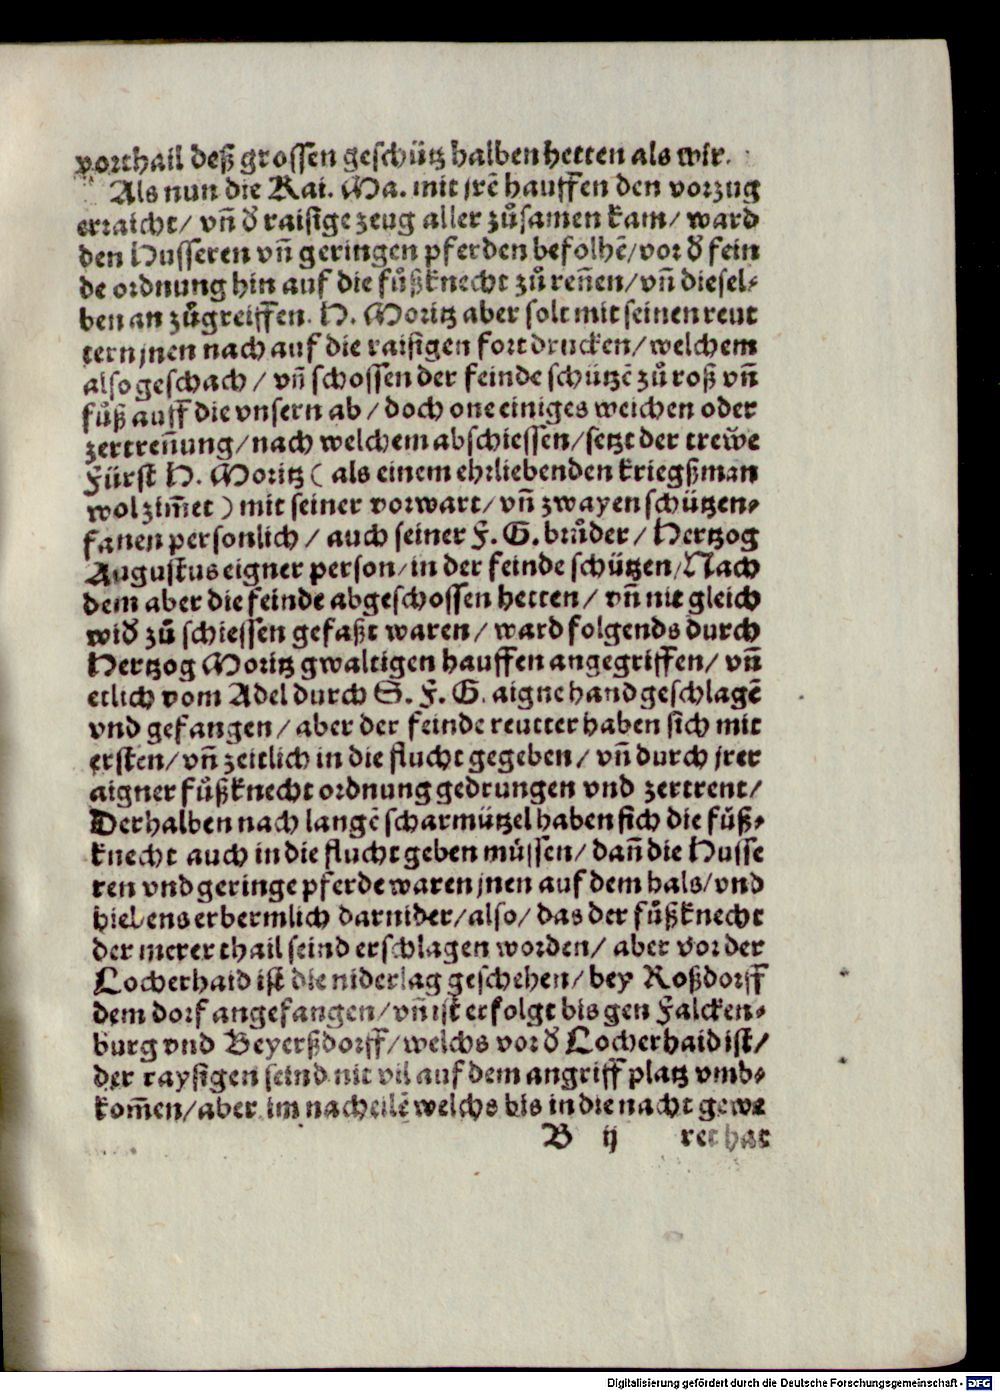 vorthail deß grossen geschütz halben hetten als wir.
Als nun die Kai. Ma. mit jrẽ hauffen den vorzug
erraicht/ vñ d̕ raisige zeug aller zůsamen kam/ ward
den Husseren vñ geringen pferden befolhẽ/ vor d̕ fein
de ordnung hin auf die fůßknecht zů reñen/ vñ diesel⸗
ben an zůgreiffen. H. Moritz aber solt mit seinen reut
tern jnen nach auf die raisigen fort drucken/ welchem
also geschach / vñ schossen der feinde schützẽ zů roß vñ
fůß auff die vnsern ab / doch one einiges weichen oder
zertreñung/ nach welchem abschiessen/ setzt der trewe
Fürst H. Moritz ( als einem ehrliebenden kriegßman
wol zim̃et ) mit seiner vorwart/ vñ zwayen schützen⸗
fanen personlich / auch seiner F. G. brůder / Hertzog
Augustus eigner person/ in der feinde schützen/ Nach
dem aber die feinde abgeschossen hetten / vñ nit gleich
wid̕ zů schiessen gefaßt waren / ward folgends durch
Hertzog Moritz gwaltigen hauffen angegriffen/ vñ
etlich vom Adel durch S. F. G. aigne hand geschlagẽ
vnd gefangen / aber der feinde reutter haben sich mit
ersten/ vñ zeitlich in die flucht gegeben / vñ durch jrer
aigner fůßknecht ordnung gedrungen vnd zertrent/
Derhalben nach langẽ scharmützel haben sich die fůß⸗
knecht auch in die flucht geben můssen/ dañ die Husse
ren vnd geringe pferde waren jnen auf dem hals/ vnd
hielens erbermlich darnider/ also/ das der fůßknecht
der merer thail seind erschlagen worden/ aber vor der
Locherhaid ist die niderlag geschehen/ bey Roßdorff
dem dorf angefangen/ vñ ist erfolgt bis gen Falcken⸗
burg vnd Beyerßdorff/ welchs vor d̕ Locherhaid ist/
der raysigen seind nit vil auf dem angriff platz vmb⸗
kom̃en/ aber im nacheilẽ welchs bis in die nacht gewe
B ij ret hat
Digitalisierung gefördert durch die Deutsche Forschungsgemeinschaft - DFG